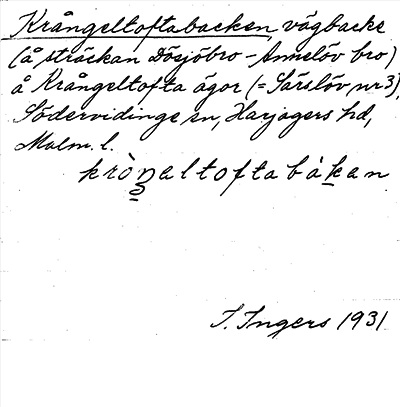 Krångeltoftabacken vägbacke
(å sträckan Dösjöbro - Annelöv bro)
å Krångeltofta ägor (= Särslöv nr 3),
Södervidinge sn, Harjagers hd,
Malm. l.
kròŋəltoftabákan
I. Ingers 1931